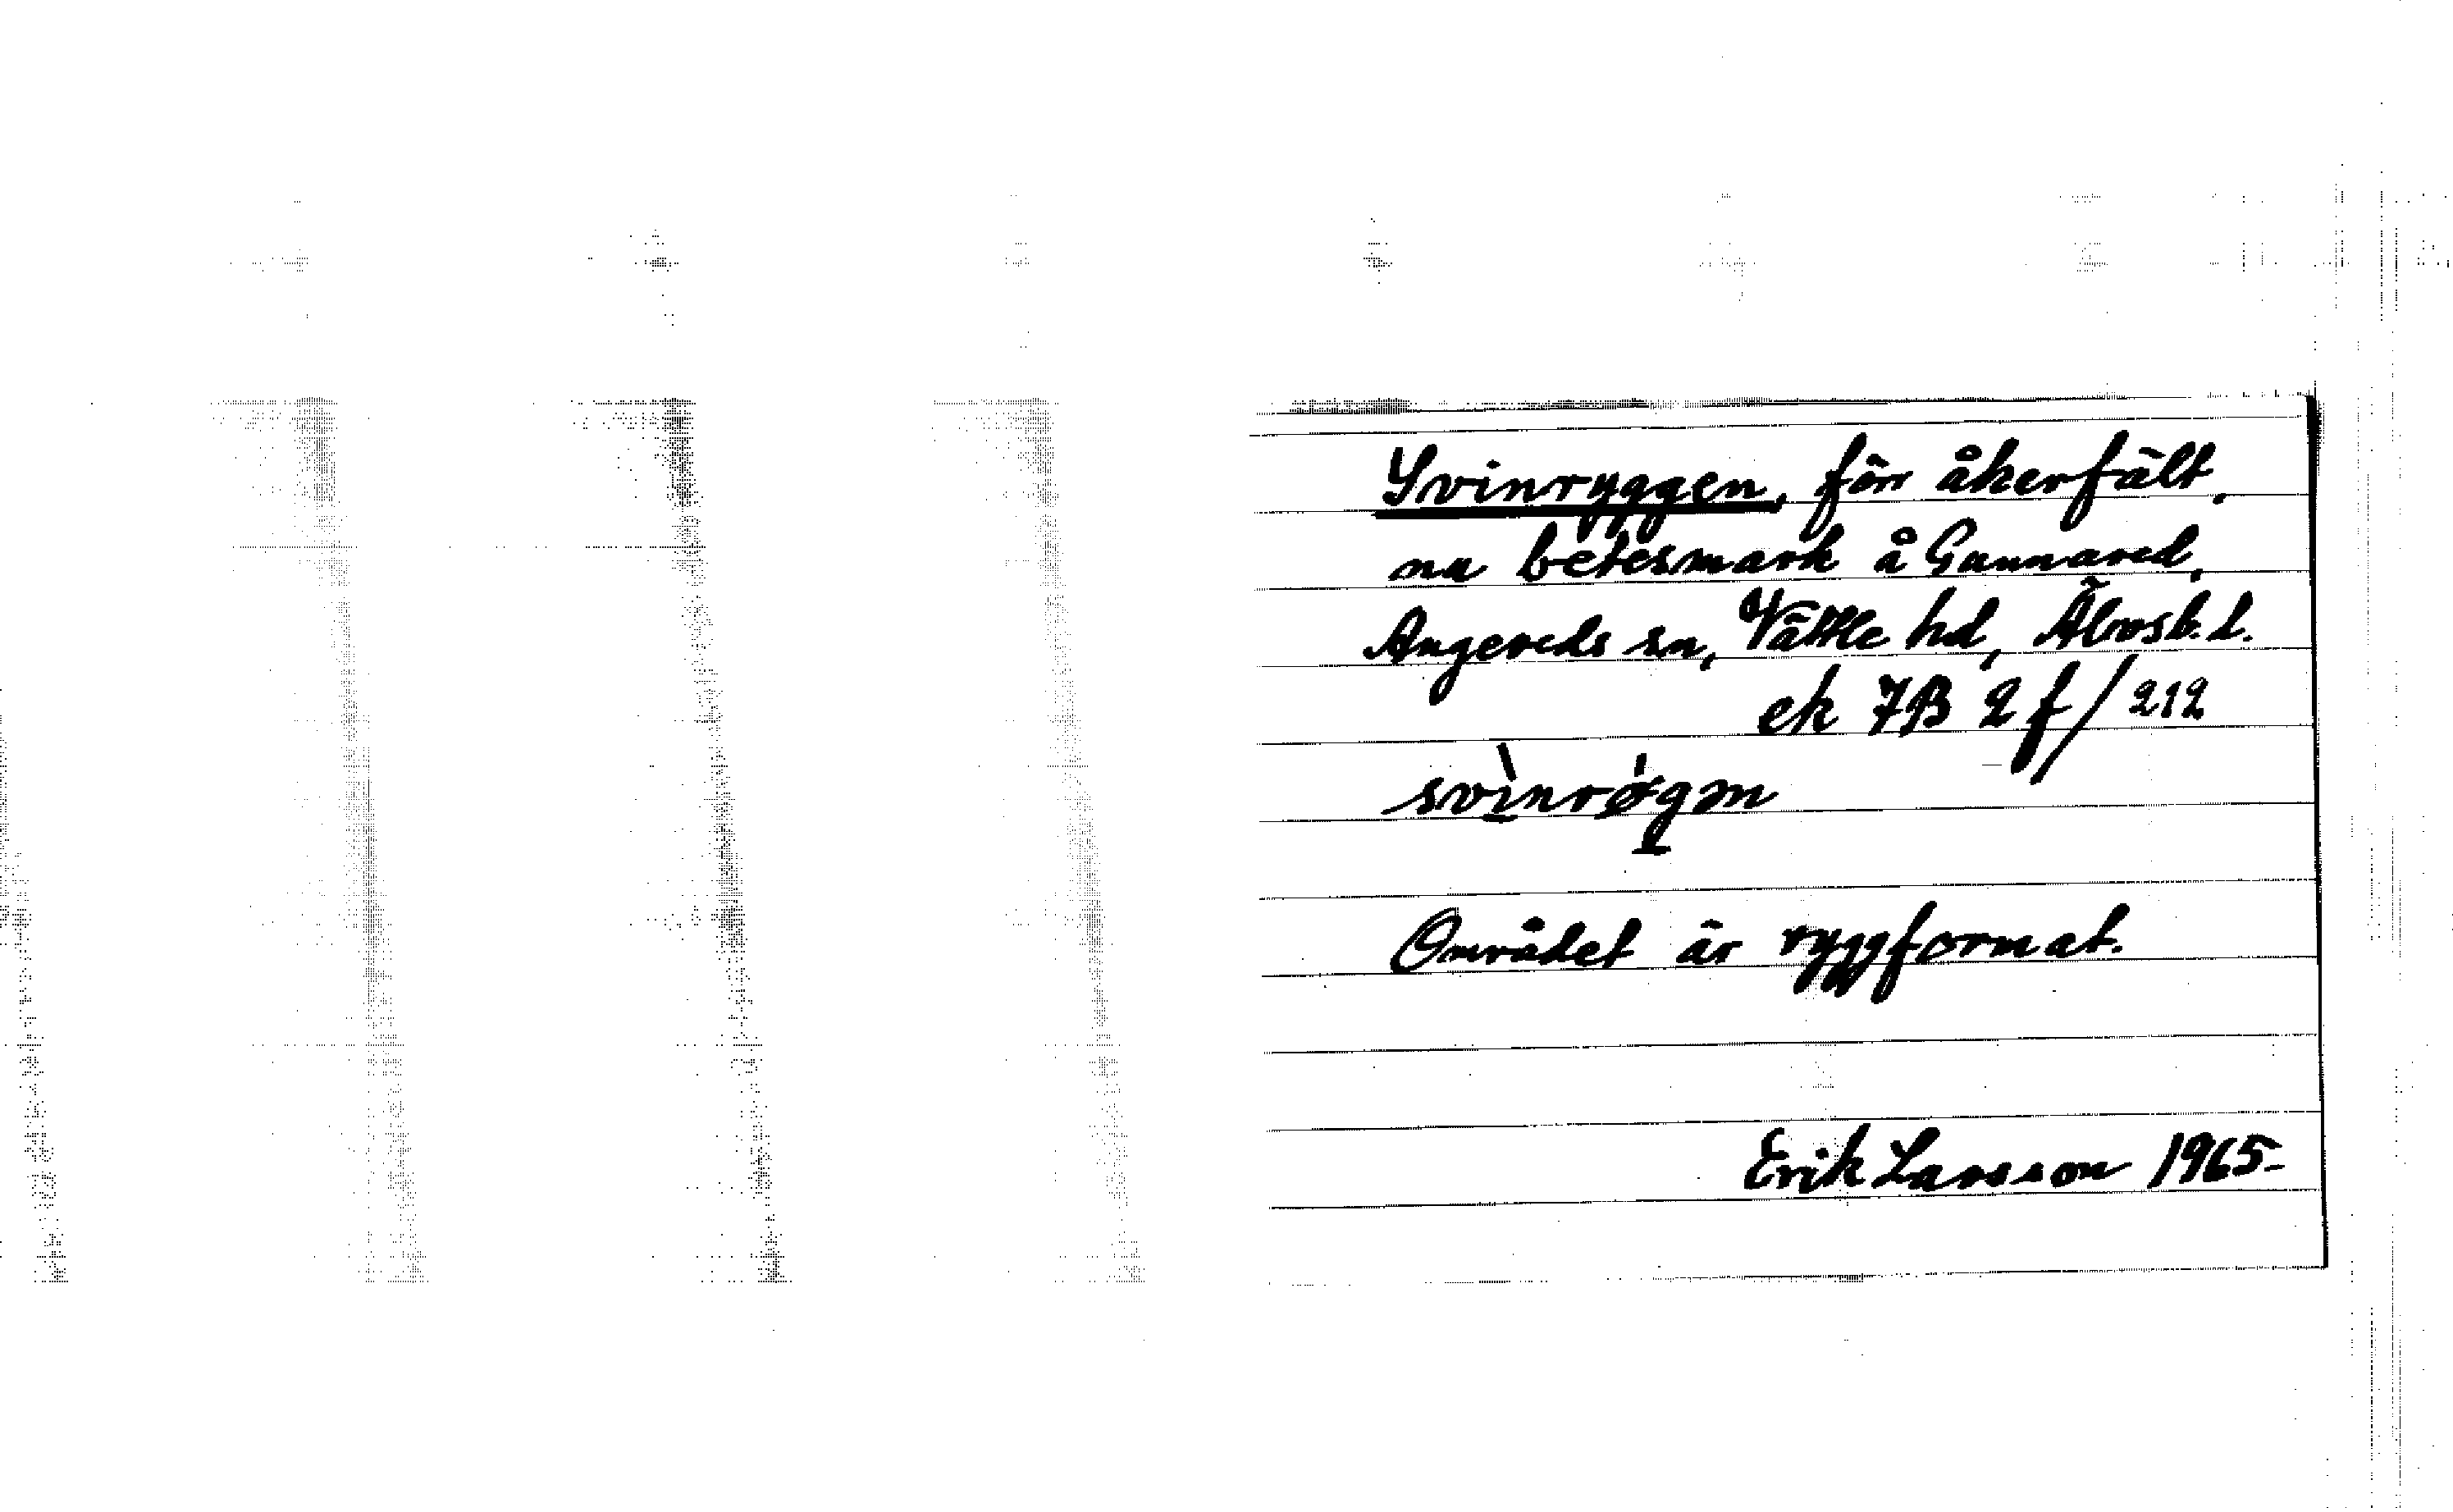 Svinryggen, förr åkerfält,
nu betesmark å Gunnared,
Angereds sn, Vättle hd, Älvsb. L.
ek 7B 2f/212
svìnrøgən
Området är ryggformat.
Erik Larsson 1965